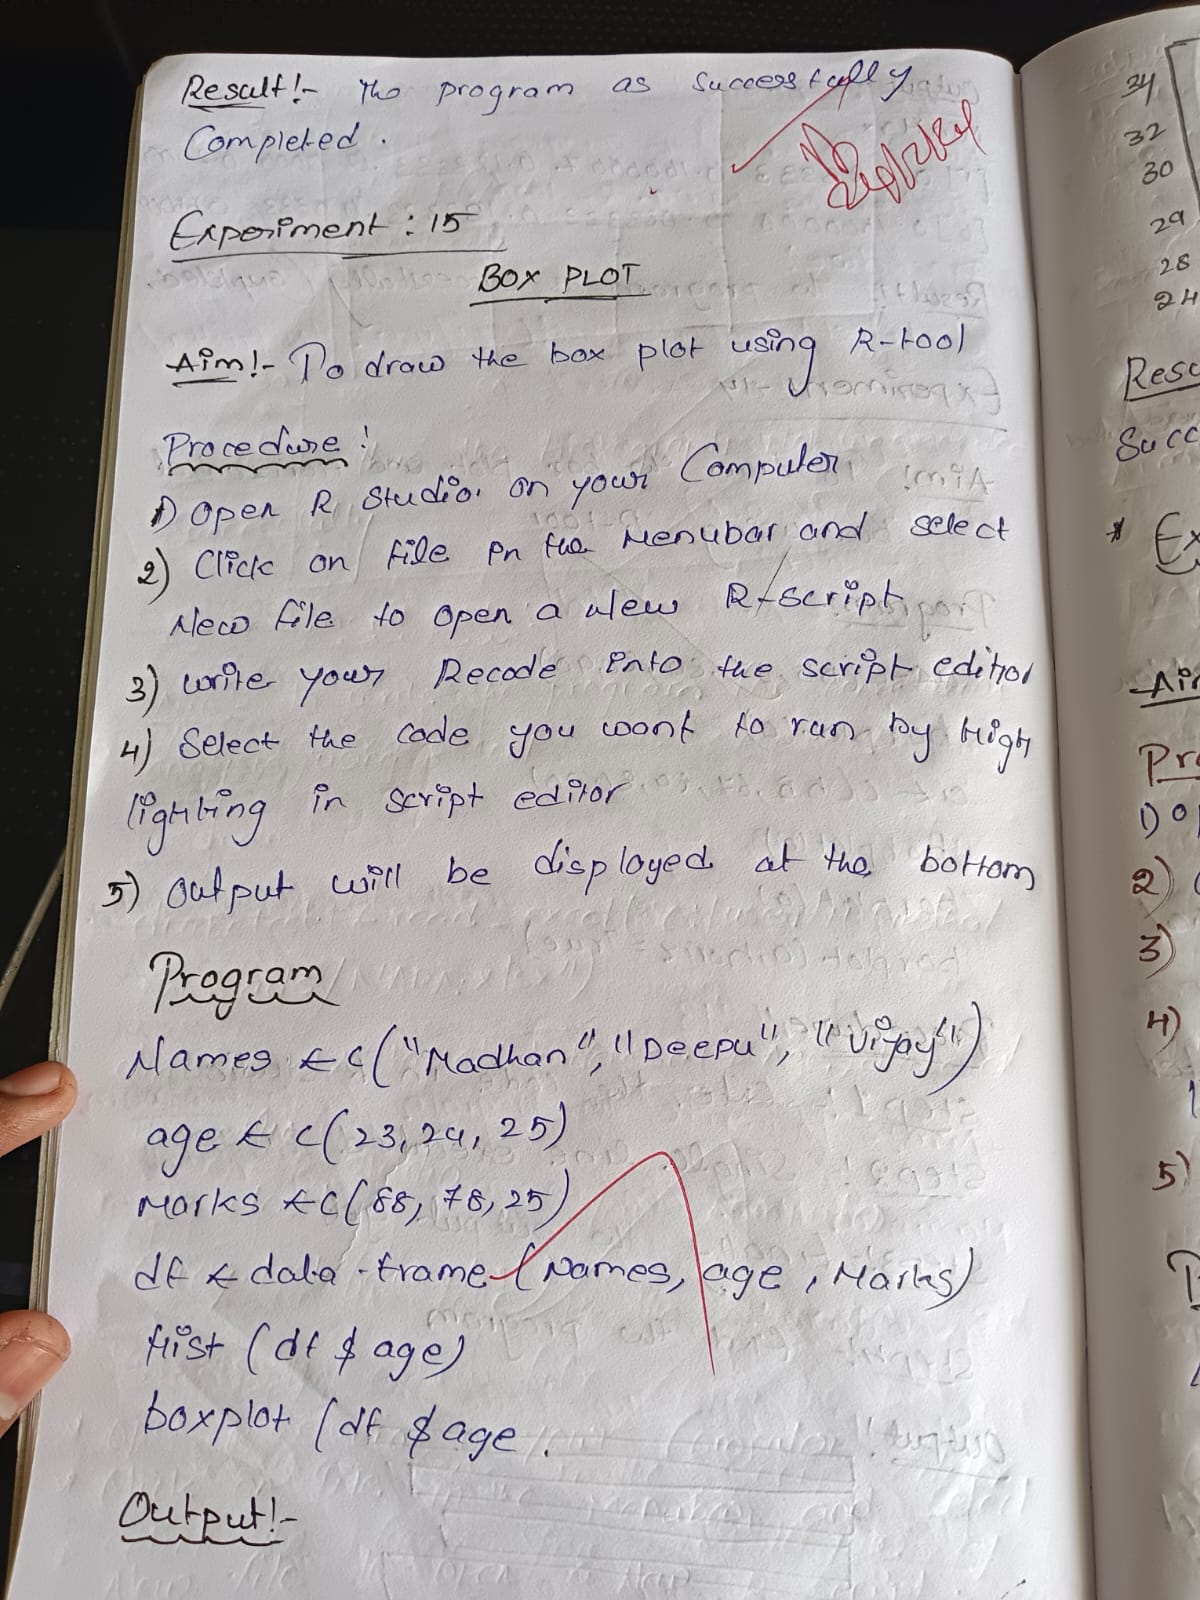 Result!- The program as Successfully
Completed.
Experiment : 15
BOX PLOT
Aim!- To draw the box plot using R-tool
Procedure :
1) Open R Studio. on your Computer
2) Click on file in the Menubar and select
New file to open a New R-script
3) write your Recode into the script editor
4) Select the code you want to run by high
lighting in script editor
5) Output will be displayed at the bottom
Program
Names ← c("Madhan", "Deepu", "Vijay")
age ← c(23, 24, 25)
Marks ← c(88, 78, 25)
df ← data.frame (Names, age, Marks)
Hist (df $ age)
boxplot (df $ age.
Output!-
34
32
30
29
28
24
Resu
Succ
* Ex
Aim
Pro
1) O
2)
3)
4)
5)